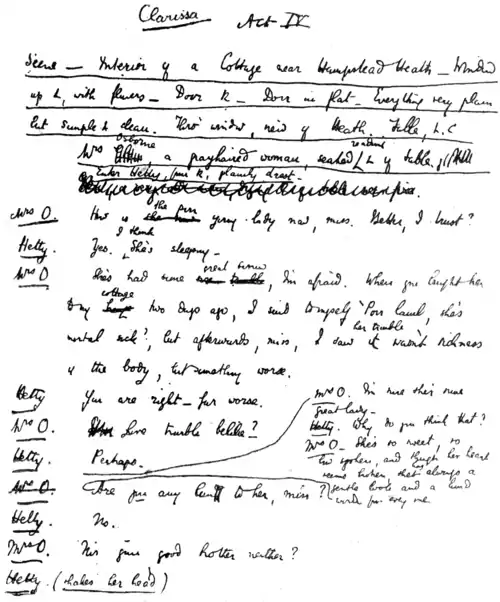 Clarissa Act IV
Scene — Interior of a Cottage near Hampstead Heath — Window
up L, with flowers — Door R — Door in flat — Everything very plain
but simple & clean. Thro' window, view of Heath. Table, L.C
Mrs Osborne, a grayhaired woman, seated reading L of table.
Enter Hetty, R, plainly drest.
Mrs O. How is the poor young lady now, miss. Better, I trust?
Hetty. Yes. I think she's sleeping —
Mrs O She's had some great sorrow, I'm afraid. When you brought her
to my cottage two days ago, I said to myself 'Poor lamb, she's
mortal sick', but afterwards, miss, I saw her trouble wasn't sickness
of the body, but something worse.
Hetty You are right — far worse.
Mrs O. Love trouble belike?
Hetty. Perhaps.
Mrs O. I'm sure she's some
great lady —
Hetty. Why do you think that?
Mrs O — She's so sweet, so
low spoken, and though her heart
seems broken she's always a
gentle look and a kind
word for every one
Mrs O. Are you any kin to her, miss?
Hetty. No.
Mrs O. Nor your good brother neither?
Hetty. (shakes her head)